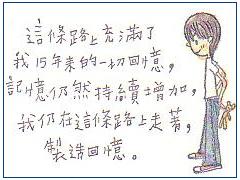 這條路上充滿了
我15年來的一切回憶，
記憶仍然持續增加，
我仍在這條路上走著，
製造回憶。